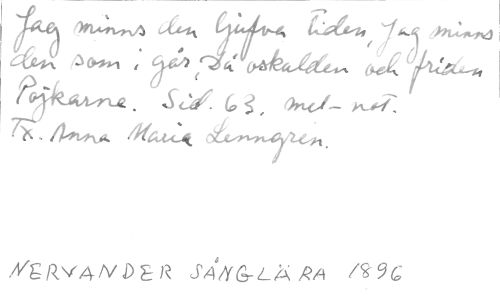 Jag minns den ljufva tiden, Jag minns
den som i går, Då oskulden och friden
Pojkarne. Sid. 63, mel-not.
Tx. Anna Maria Lenngren.
NERVANDER SÅNGLÄRA 1896